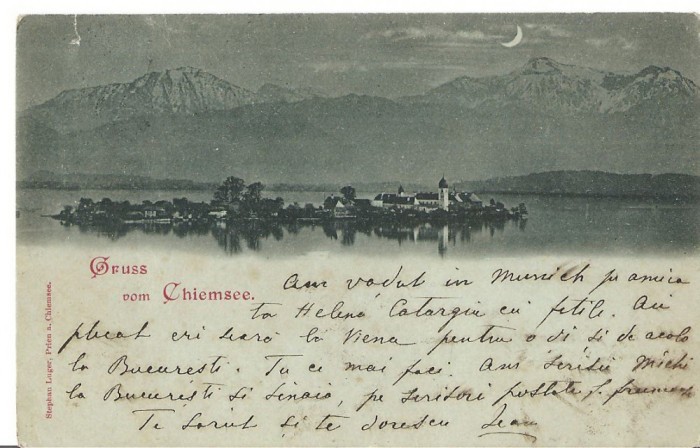 Gruss
vom Chiemsee.
Stephan Luger, Prien a. Chiemsee.
Am vadut in Munich pe amica
ta Helena Catargiu cu fetile. Au
plecat eri seară la Viena pentru o di si de acolo
la Bucuresti. Tu ce mai faci. Am scrisu Michi
la Bucuresti si Sinaia, pe scrisori postale f. frumoase
Te sarut si te dorescu Jean